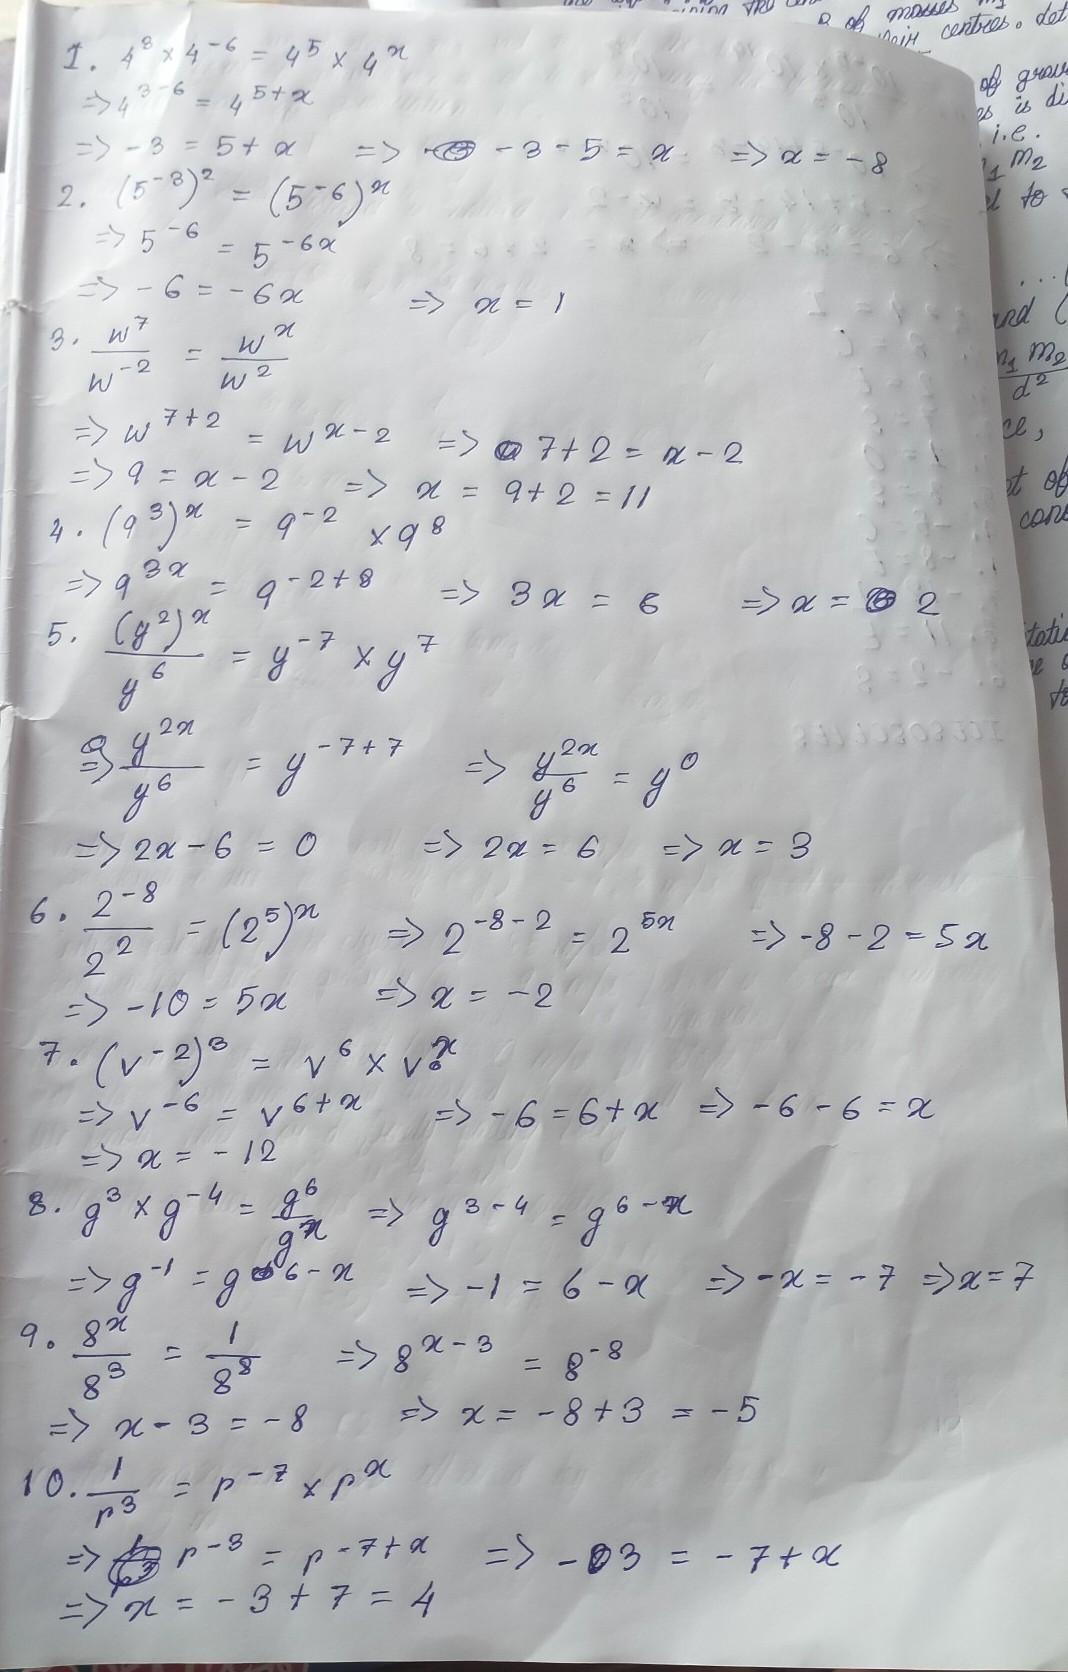 1. 4³ × 4⁻⁶ = 4⁵ × 4ˣ
=> 4³⁻⁶ = 4⁵⁺ˣ
=> -3 = 5 + x => -3 - 5 = x => x = -8
2. (5⁻³)² = (5⁻⁶)ˣ
=> 5⁻⁶ = 5⁻⁶ˣ
=> -6 = -6x => x = 1
3. w⁷/w⁻² = wˣ/w²
=> w⁷⁺² = wˣ⁻² => 7 + 2 = x - 2
=> 9 = x - 2 => x = 9 + 2 = 11
4. (9³)ˣ = 9⁻² × 9⁸
=> 9³ˣ = 9⁻²⁺⁸ => 3x = 6 => x = 2
5. (y²)ˣ/y⁶ = y⁻⁷ × y⁷
=> y²ˣ/y⁶ = y⁻⁷⁺⁷ => y²ˣ/y⁶ = y⁰
=> 2x - 6 = 0 => 2x = 6 => x = 3
6. 2⁻⁸/2² = (2⁵)ˣ => 2⁻⁸⁻² = 2⁵ˣ => -8 - 2 = 5x
=> -10 = 5x => x = -2
7. (v⁻²)³ = v⁶ × vˣ
=> v⁻⁶ = v⁶⁺ˣ => -6 = 6 + x => -6 - 6 = x
=> x = -12
8. g³ × g⁻⁴ = g⁶/gˣ => g³⁻⁴ = g⁶⁻ˣ
=> g⁻¹ = g⁶⁻ˣ => -1 = 6 - x => -x = -7 => x = 7
9. 8ˣ/8³ = 1/8⁸ => 8ˣ⁻³ = 8⁻⁸
=> x - 3 = -8 => x = -8 + 3 = -5
10. 1/p³ = p⁻⁷ × pˣ
=> p⁻³ = p⁻⁷⁺ˣ => -3 = -7 + x
=> x = -3 + 7 = 4
of masses
centres. det
of grav
is di
i.e.
m₂
to
and (
m₁ m₂
d²
of
cons